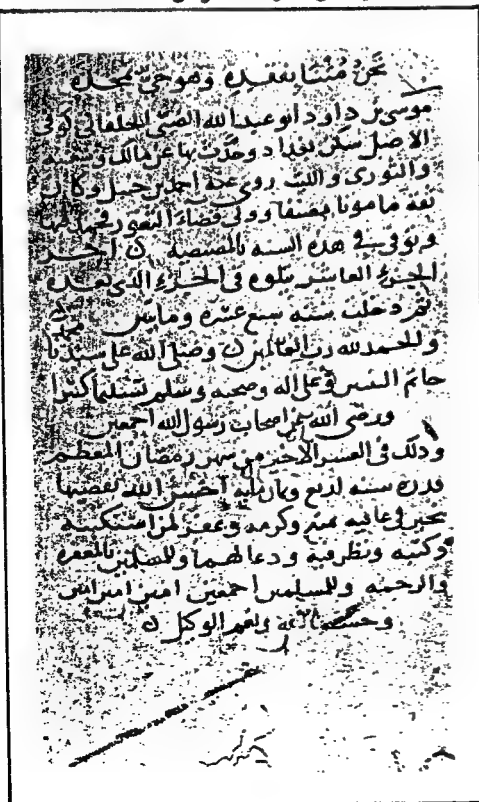 نحن متنا بفقده وهو حي بمجده
موسى بن داود ابو عبد الله الضبي الخلقاني كوفي
الاصل سكن بغداد وحدث بها عن مالك وشعبة
والثوري والليث روى عنه احمد بن حنبل وكان
ثقة مامونا مصنفا وولي قضاء الثغور فحمد فيها
وتوفي في هذه السنة بالمصيصه ن اخر
الجزء العاشر يتلوه في الجزء الذي بعده
ثم دخلت سنه سبع عشره ومايتين
والحمد لله رب العالمين ن وصلى الله على سيدنا
خاتم النبيين وعلى اله وصحبه وسلم تسليما كثيرا
ورضي الله عن اصحاب رسول الله اجمعين
وذلك في العشر الاخير من شهر رمضان المعظم
قدره سنه اربع وثمان مايه احسن الله تقضيها
بخير وعافيه بمنه وكرمه وغفر لمن استكتبه
وكتبه ونظر فيه ودعا لهما وللمسلمين بالمغفره
والرحمه وللمسلمين اجمعين امين امين امين
وحسبنا الله ونعم الوكيل ن